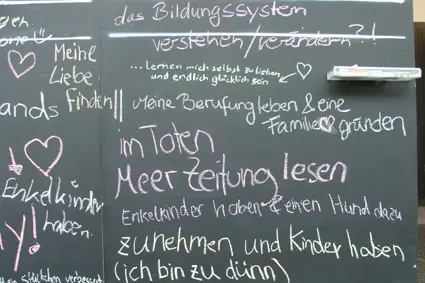 das Bildungssystem
verstehen/verändern?!
Meine
Liebe
finden!!
...Lernen mich selbst zu lieben
und endlich glücklich sein
Meine Berufung leben & eine
Familie gründen
im Toten
Meer Zeitung lesen
Enkelkinder
haben.
Enkelkinder haben & einen Hund dazu
zunehmen und Kinder haben
(ich bin zu dünn)